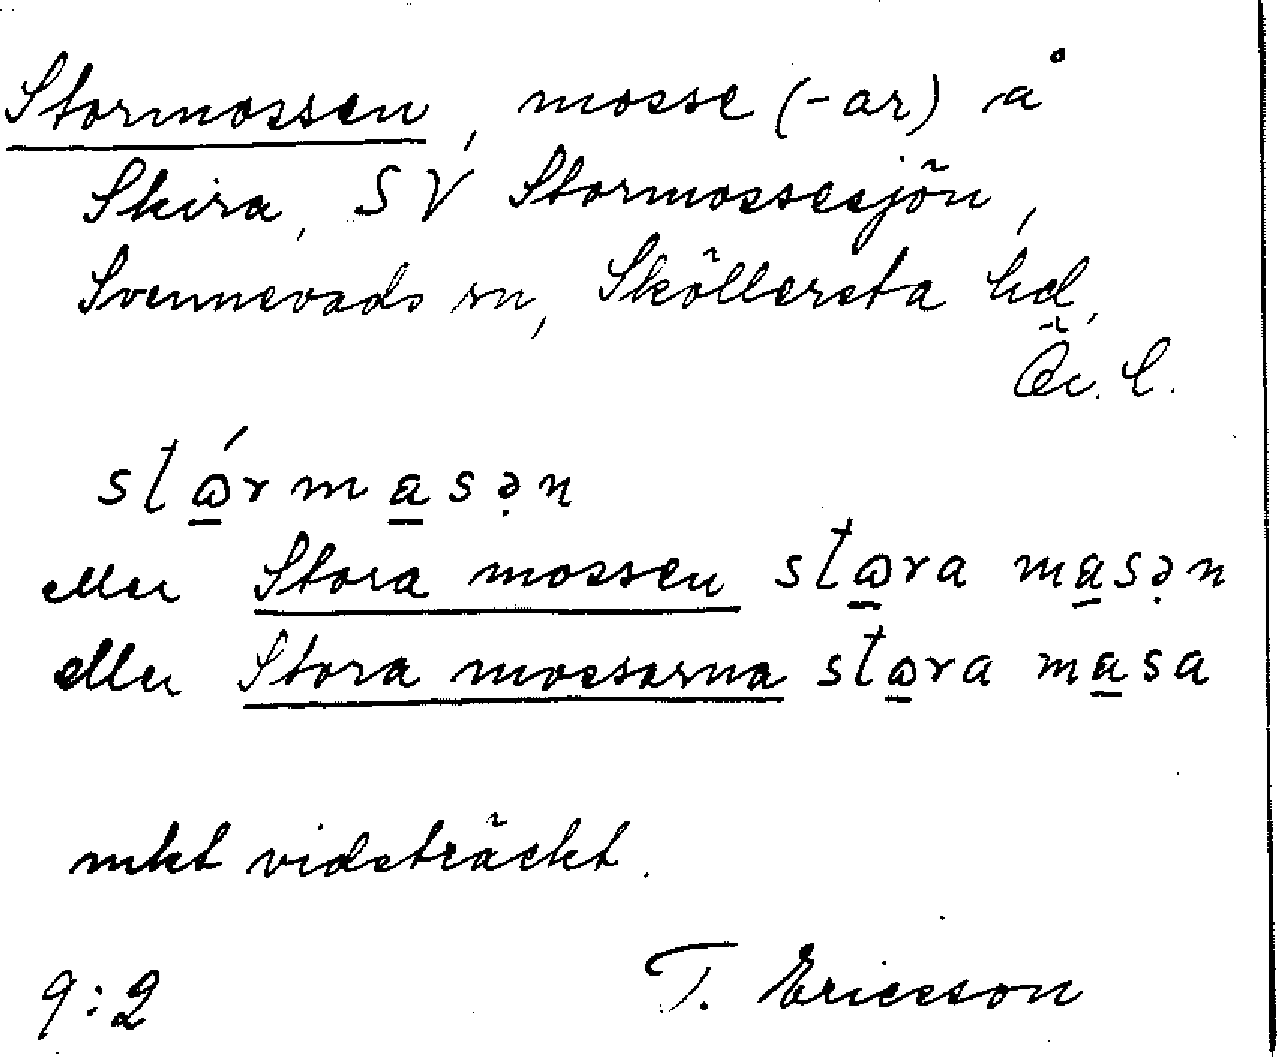 Stormossen, mosse (-ar) å
Skira, SV Stormossesjön,
Svennevads sn, Sköllersta hd,
Ör. l.
stɷ́rmasən
eller Stora mossen stɷra masən
eller Stora mossarna stɷra masa
mkt vidsträckt.
9:2 T. Ericsson